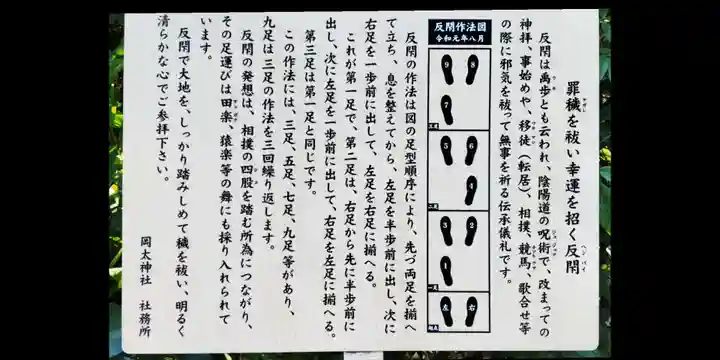 罪穢を祓い幸運を招く反閇
ヘンバイ
反閇は禹歩とも云われ、陰陽道の呪術で、改まっての
神拝、事始めや、移徙（転居）、相撲、競馬、歌合せ等
の際に邪気を祓って無事を祈る伝承儀礼です。
反閇作法図
令和元年八月
9
8
7
5
6
4
3
2
1
左
右
反閇の作法は図の足型順序により、先づ両足を揃へ
て立ち、息を整えてから、左足を半歩前に出し、次に
右足を一歩前に出して、左足を右足に揃へる。
これが第一足で、第二足は、右足から先に半歩前に
出し、次に左足を一歩前に出して、右足を左足に揃へる。
第三足は第一足と同じです。
この作法には、三足、五足、七足、九足等があり、
九足は三足の作法を三回繰り返します。
反閇の発想は、相撲の四股を踏む所為につながり、
その足運びは田楽、猿楽等の舞にも採り入れられて
います。
反閇で大地を、しっかり踏みしめて穢を祓い、明るく
清らかな心でご参拝下さい。
岡太神社　社務所